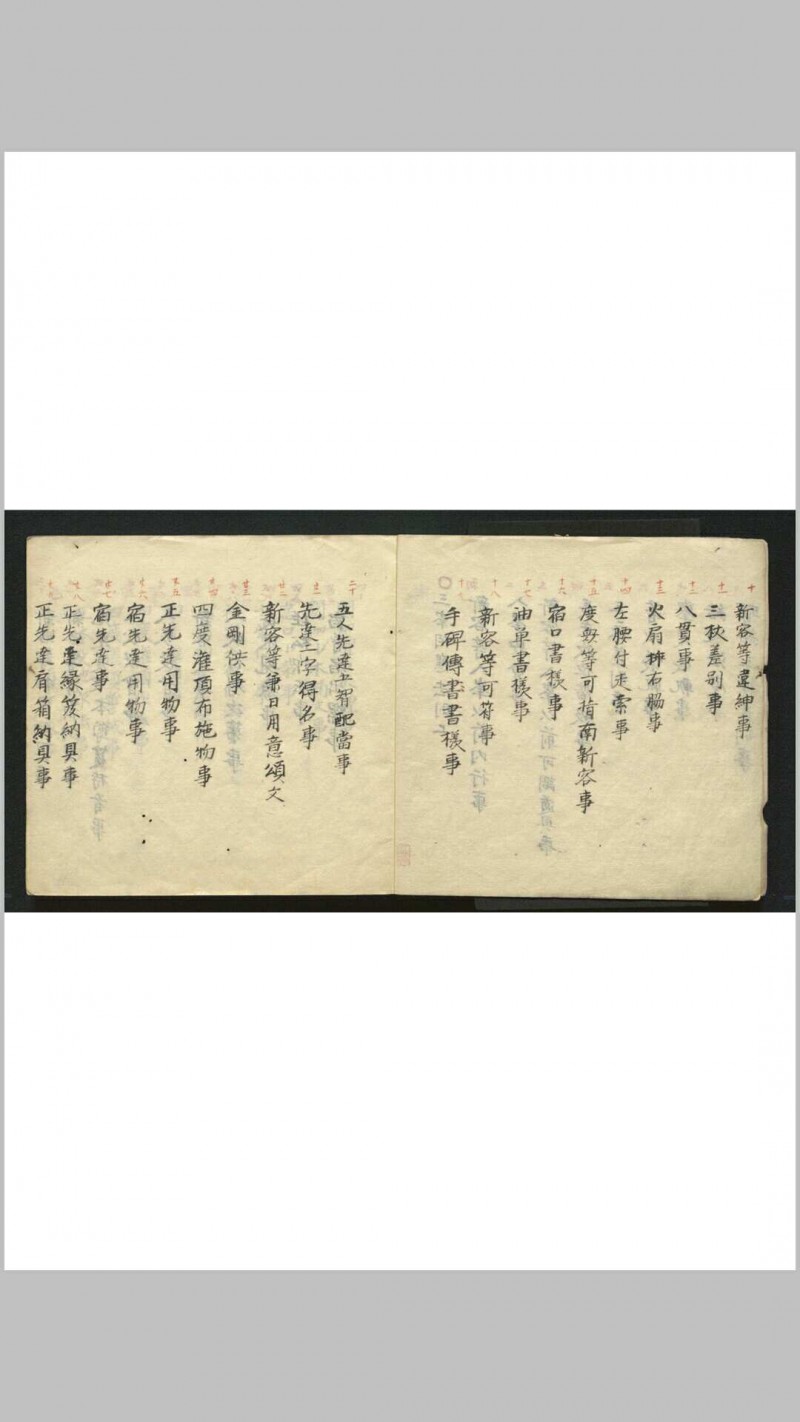 十
新客等違紳事
十一
三杖差別事
十二
八貫事
十三
火扇 右腸事
十四
左腰付走索事
十五
度等可指南新客事
十六
宿口書樣事
十七
油單書樣事
十八
新客等可符事
十九
手碑傳書書樣事
二十
五人先達五智配當事
廿一
先達二字得名事
廿二
新客等兼日用意頌文
廿三
金剛供事
廿四
四度灌頂布施物事
廿五
正先達用物事
廿六
宿先達用物事
廿七
宿先達事
廿八
正先達緣笈納具事
廿九
正先達肩箱納具事